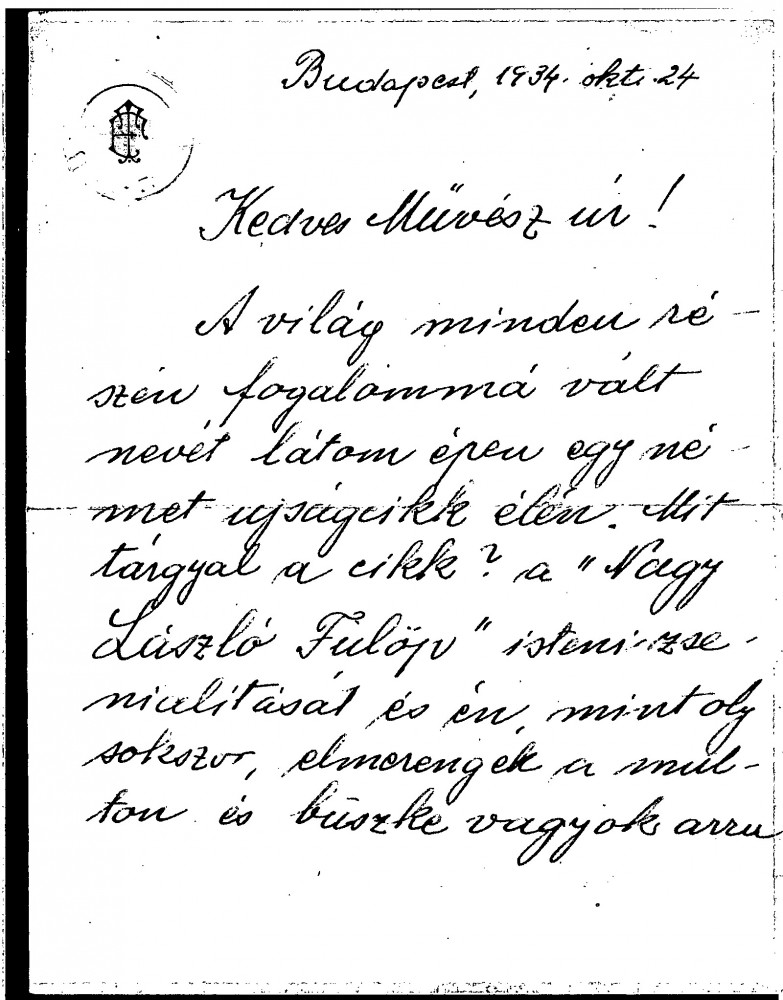 Budapest, 1934. okt. 24
Kedves Művész úr!
A világ minden ré-
szén fogalommá vált
nevét látom épen egy né-
met ujságcikk élén. Mit
tárgyal a cikk? a "Nagy
László Fülöp" isteni zse-
nialitását és én, mint oly
sokszor, elmerengek a mul-
ton és büszke vagyok arra